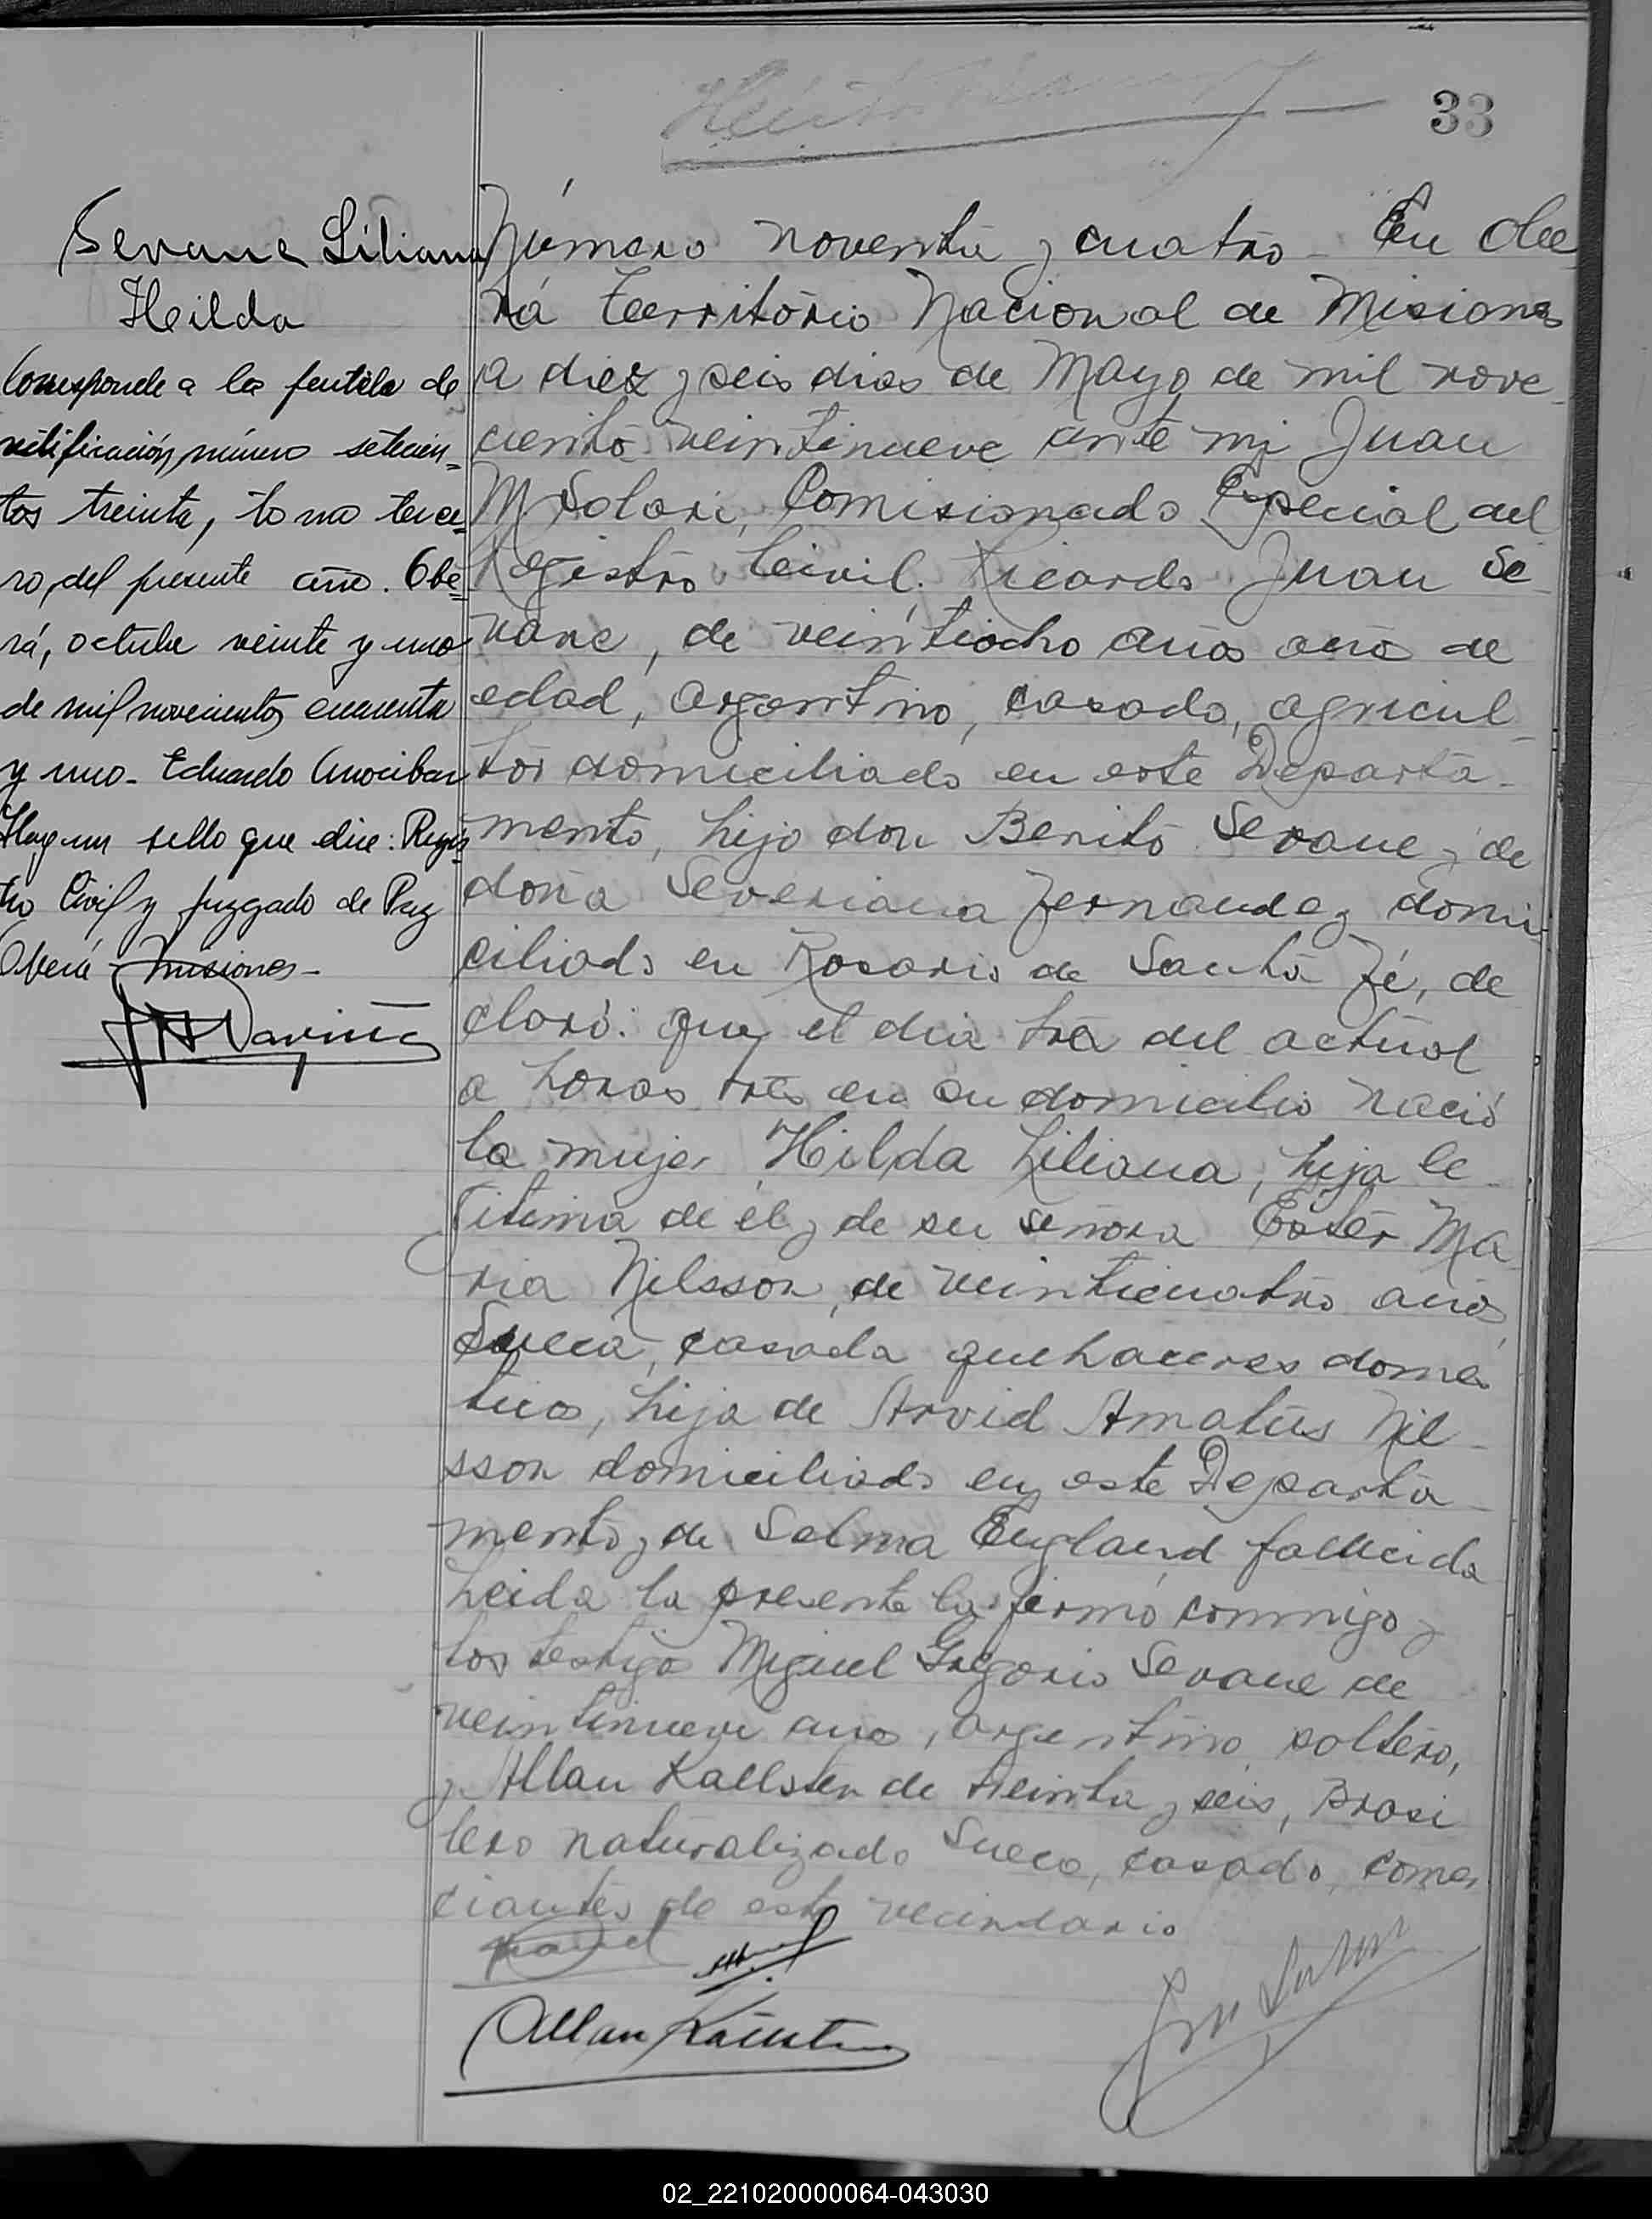 33
Sevane Liliana
Hilda
Corresponde a la partida de
ratificación, número setecien=
tos treinta, tomo terce=
ro, del presente año. Obe=
rá, octubre veinte y uno
de mil novecientos cuarenta
y uno - Eduardo
Hay un sello que dice: Regis=
tro Civil y Juzgado de Paz
Oberá - Misiones -
Número noventa y cuatro - En Obe
rá Territorio Nacional de Misiones
a diez y seis dias de Mayo de mil nove
ciento veintinueve ante mi Juan
M Solari, Comisionado Especial del
Registro Civil. Ricardo Juan Se
vane, de veintiocho años año de
edad, argentino, casado, agricul
tor domiciliado en este Departa-
mento, hijo don Benito Sevane y de
doña Severiana Fernandez domi
ciliado en Rosario de Santa Fé, de
claró: que el dia tres del actual
a horas tres en su domicilio nació
la mujer Hilda Liliana, hija le
gitima de él y de su señora Ester Ma
ria Nilsson, de veinticuatro años,
Sueca, casada quehaceres domes
ticos, hija de Arvid Amatus Nil
sson domiciliado en este Departa
mento y de Selma England fallecida
Leida la presente la firmó conmigo y
los testigo Miguel Gregorio Sevane de
veintinueve años, argentino soltero,
y Allan Kallsten de treinta y seis, Brasi
lero naturalizado Sueco, casado, comer
ciantes de este vecindario
Allan Källsten
02_221020000064-043030